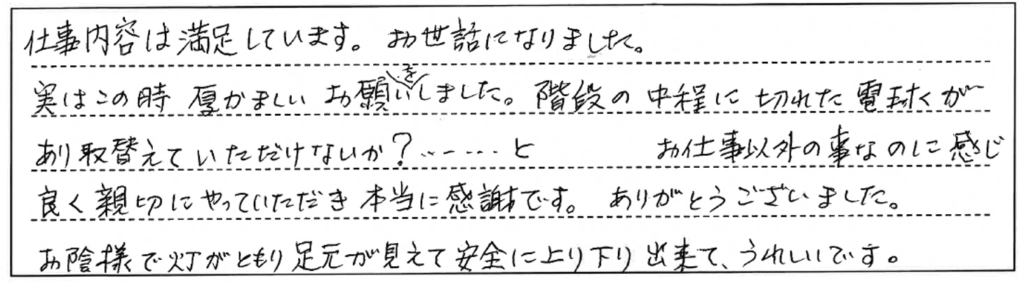 仕事内容は満足しています。お世話になりました。
実はこの時 厚かましい お願いをしました。階段の中程に切れた電球が
あり取替えていただけないか?‥‥‥と お仕事以外の事なのに感じ
良く親切にやっていただき本当に感謝です。ありがとうございました。
お陰様で灯がともり足元が見えて安全に上り下り出来て、うれしいです。